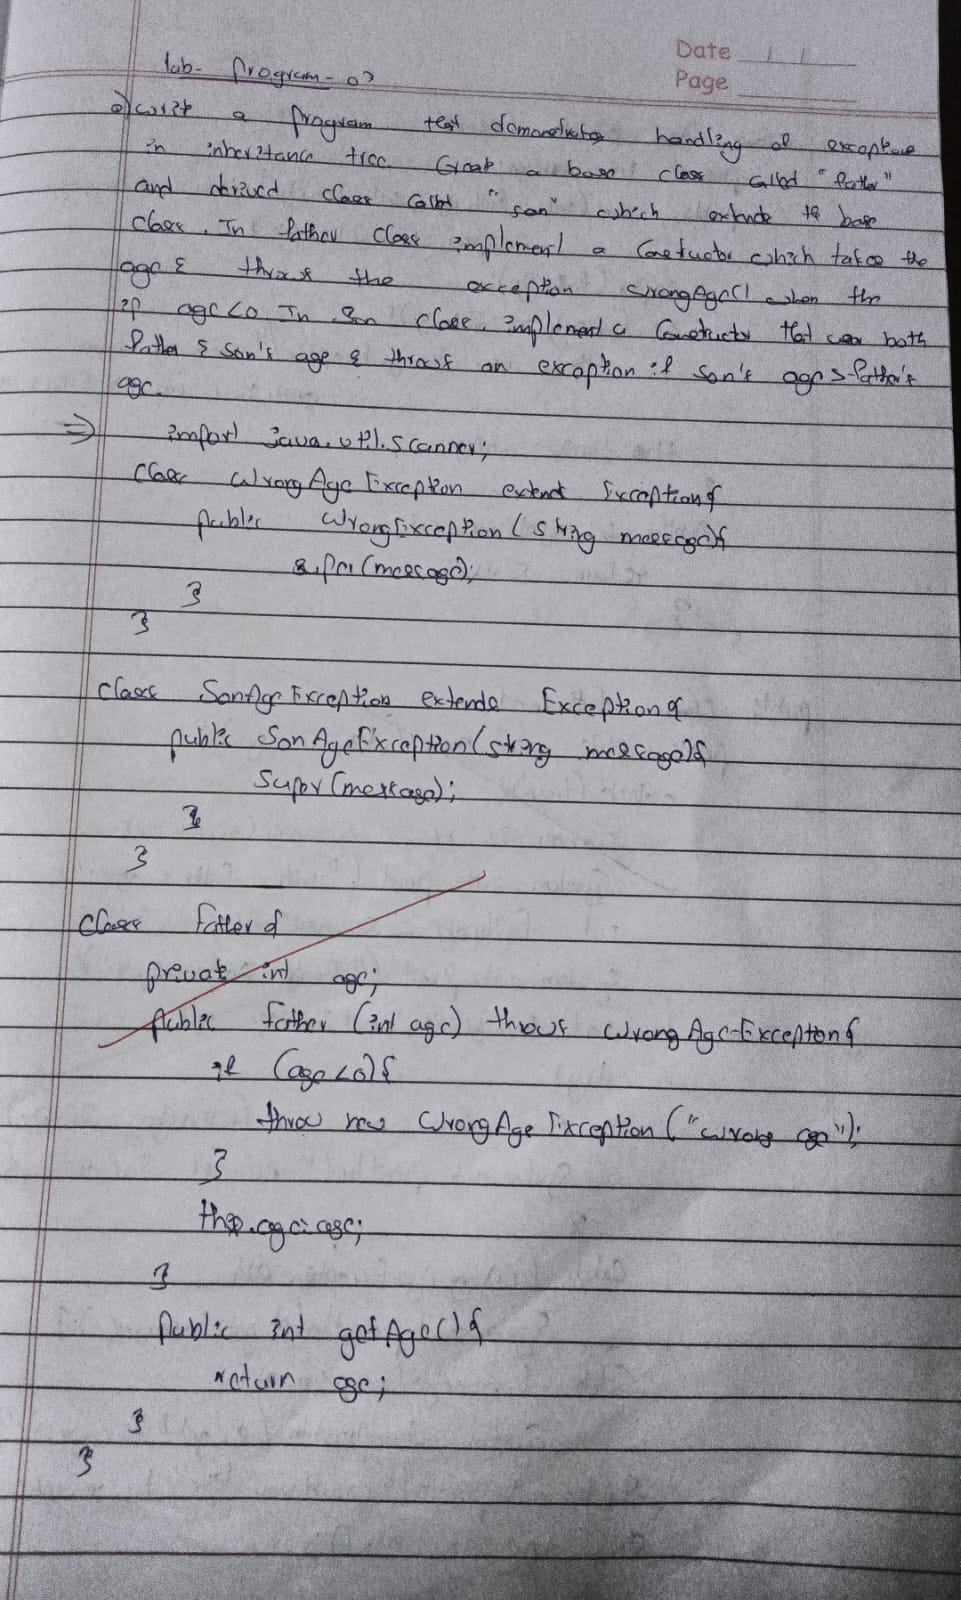 Date / /
Page
lab- Program-07
Q) write a program that demonstrates handling of exceptions
in inheritance tree. Create a base class called "father"
and derived class called "son" which extends the base
class. In father class implement a Constuctor which takes the
age & throws the exception wrongAge() when the
if age<0 In Son class, implement a Constuctor that both
father & son's age & throws an exception if son's age > father's
age.
⇒ import java.util.Scanner;
class WrongAgeException extend Exception{
public WrongException (String message){
super(message);
}
}
class SonAgeException extends Exception{
public SonAgeException (string message){
super(message);
}
}
class Father{
private int age;
public father (int age) throws WrongAgeException{
if (age<0){
throw new WrongAgeException ("wrong age");
}
this.age=age;
}
public int getAge(){
return age;
}
}